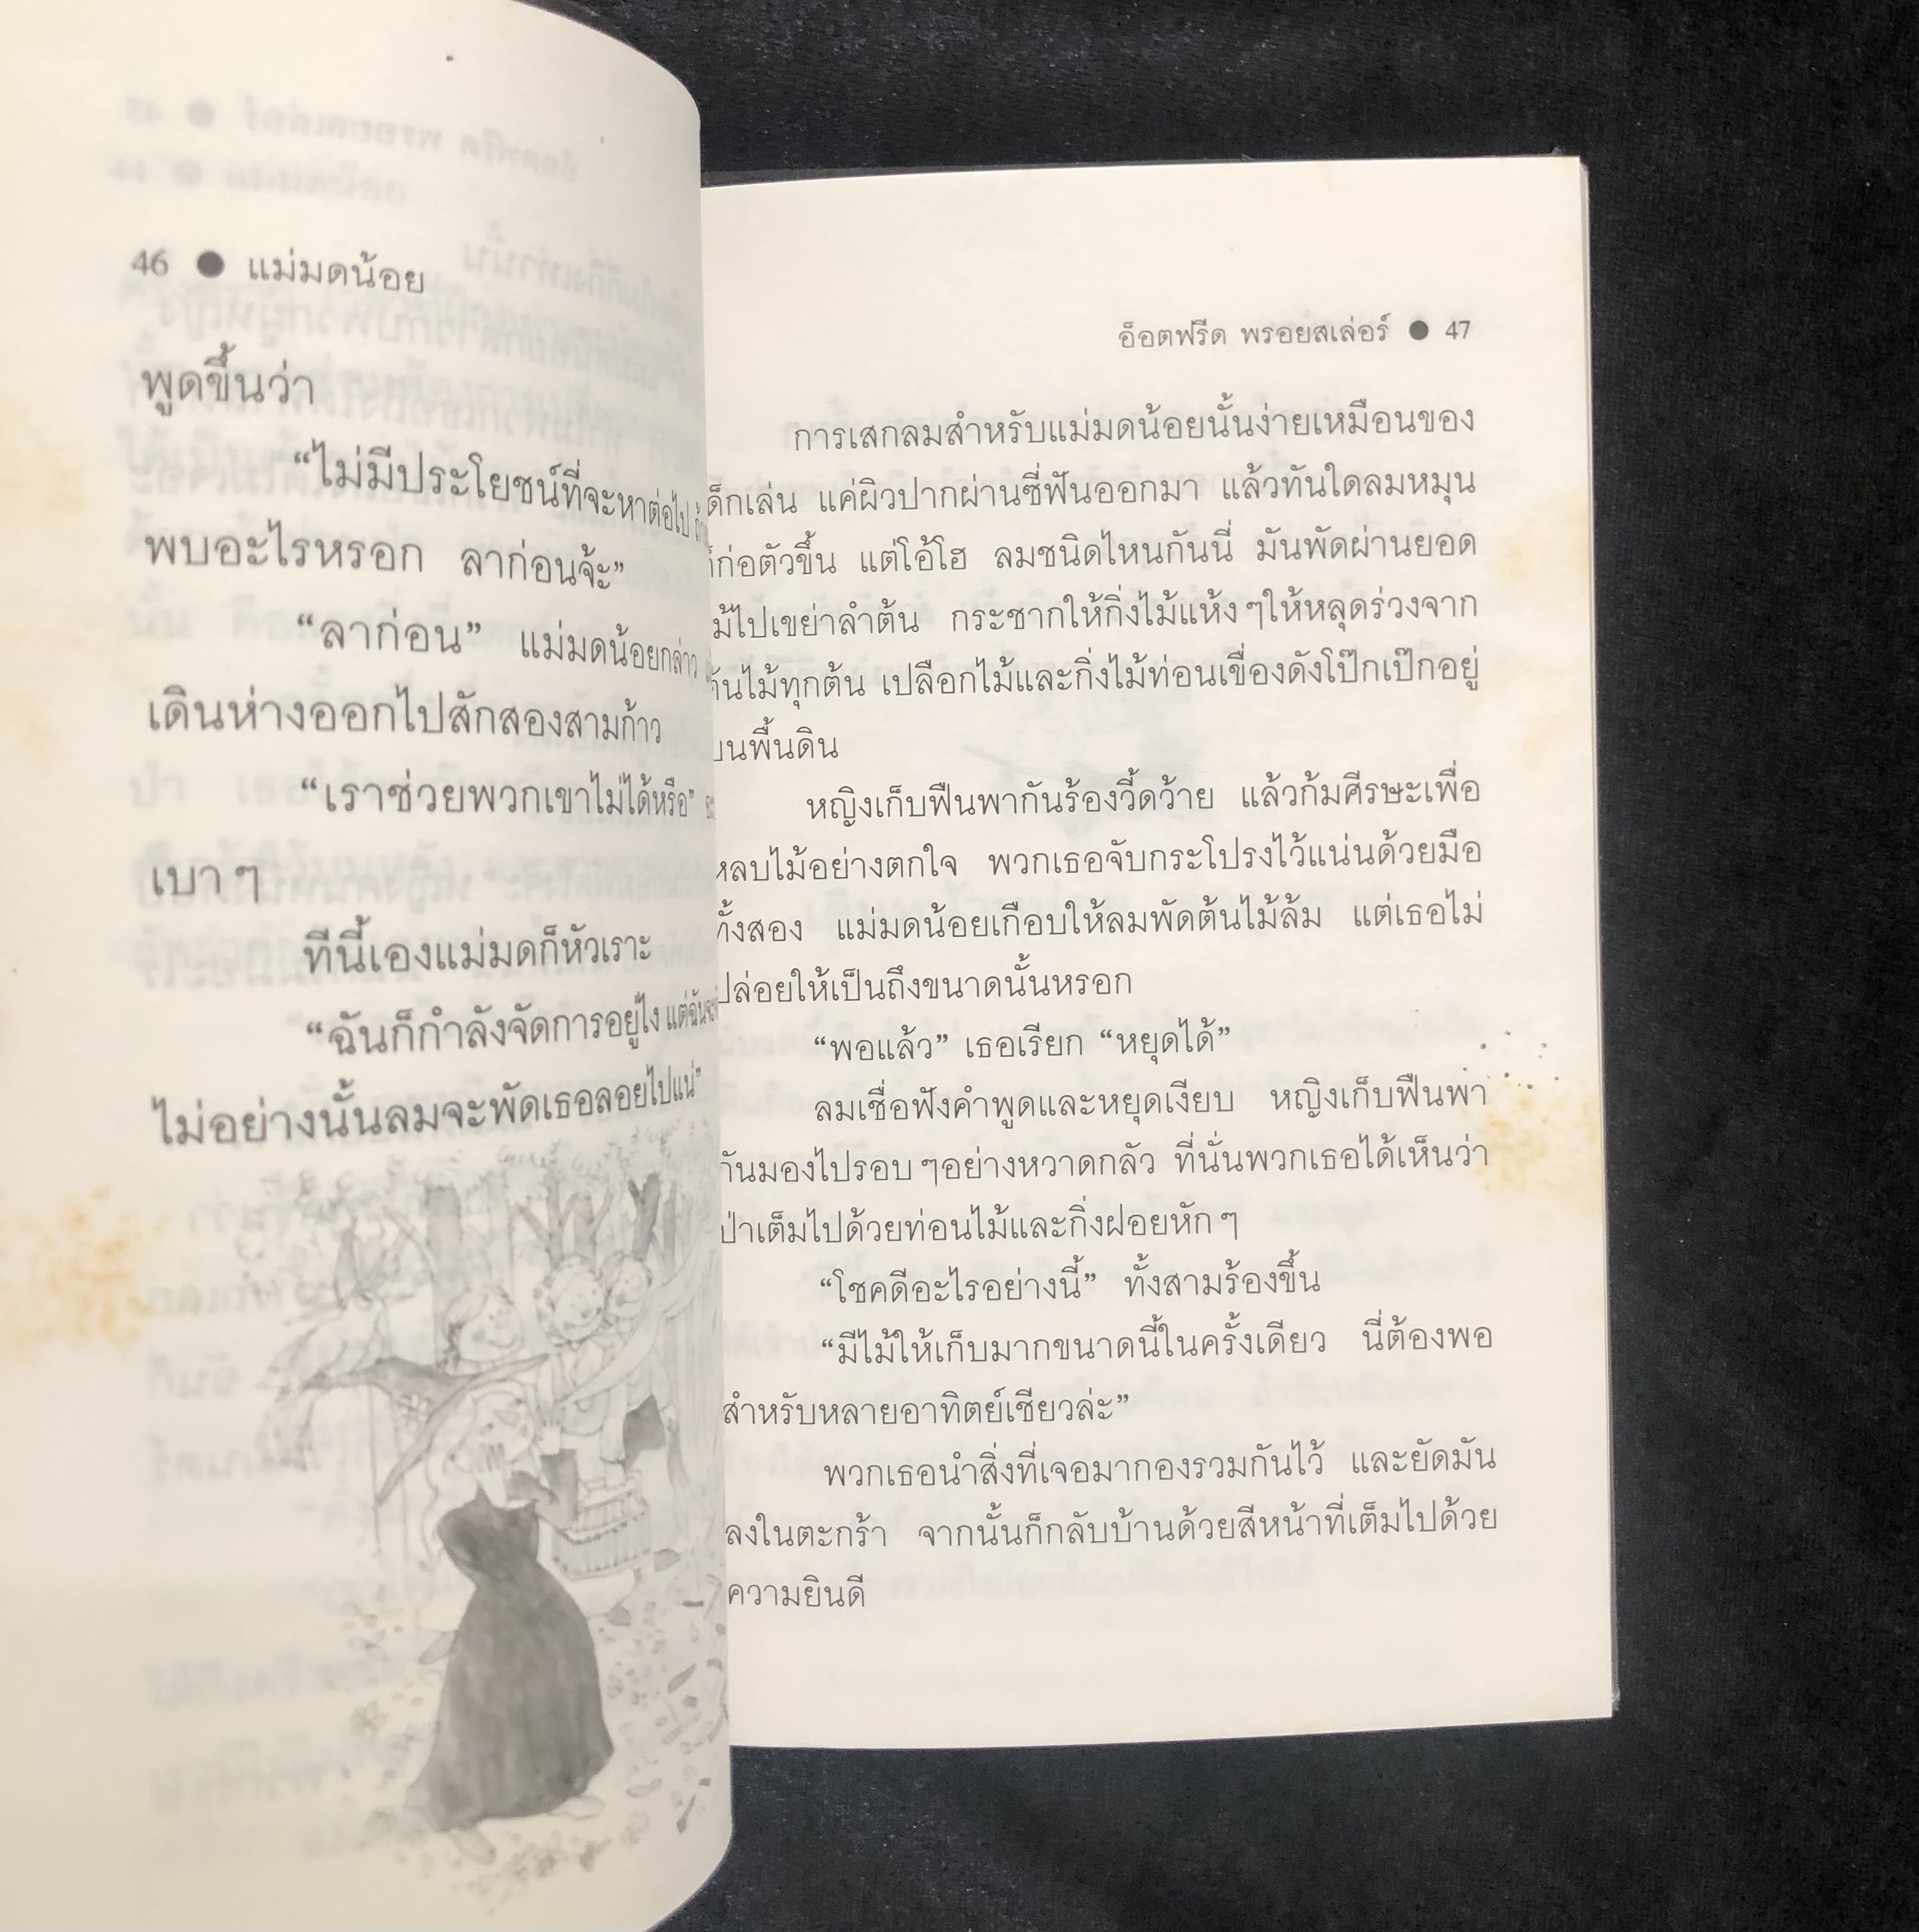 46 ● แม่มดน้อย
พูดขึ้นว่า
“ไม่มีประโยชน์ที่จะหาต่อไป
พบอะไรหรอก ลาก่อนจ้ะ”
“ลาก่อน” แม่มดน้อยกล่าว
เดินห่างออกไปสักสองสามก้าว
“เราช่วยพวกเขาไม่ได้หรือ”
เบาๆ
ทีนี้เองแม่มดก็หัวเราะ
“ฉันก็กำลังจัดการอยู่ไง แต่ฉัน
ไม่อย่างนั้นลมจะพัดเธอลอยไปแน่”
อ็อตฟรีด พรอยสเล่อร์ ● 47
การเสกลมสำหรับแม่มดน้อยนั้นง่ายเหมือนของ
เด็กเล่น แค่ผิวปากผ่านซี่ฟันออกมา แล้วทันใดลมหมุน
ก็ก่อตัวขึ้น แต่โอ้โฮ ลมชนิดไหนกันนี่ มันพัดผ่านยอด
ไม้ไปเขย่าลำต้น กระชากให้กิ่งไม้แห้งๆให้หลุดร่วงจาก
ต้นไม้ทุกต้น เปลือกไม้และกิ่งไม้ท่อนเขื่องดังโป๊กเป๊กอยู่
บนพื้นดิน
หญิงเก็บฟืนพากันร้องวี้ดว้าย แล้วก้มศีรษะเพื่อ
หลบไม้อย่างตกใจ พวกเธอจับกระโปรงไว้แน่นด้วยมือ
ทั้งสอง แม่มดน้อยเกือบให้ลมพัดต้นไม้ล้ม แต่เธอไม่
ปล่อยให้เป็นถึงขนาดนั้นหรอก
“พอแล้ว” เธอเรียก “หยุดได้”
ลมเชื่อฟังคำพูดและหยุดเงียบ หญิงเก็บฟืนพา
กันมองไปรอบๆอย่างหวาดกลัว ที่นั่นพวกเธอได้เห็นว่า
ป่าเต็มไปด้วยท่อนไม้และกิ่งฝอยหักๆ
“โชคดีอะไรอย่างนี้” ทั้งสามร้องขึ้น
“มีไม้ให้เก็บมากขนาดนี้ในครั้งเดียว นี่ต้องพอ
สำหรับหลายอาทิตย์เชียวล่ะ”
พวกเธอนำสิ่งที่เจอมากองรวมกันไว้ และยัดมัน
ลงในตะกร้า จากนั้นก็กลับบ้านด้วยสีหน้าที่เต็มไปด้วย
ความยินดี